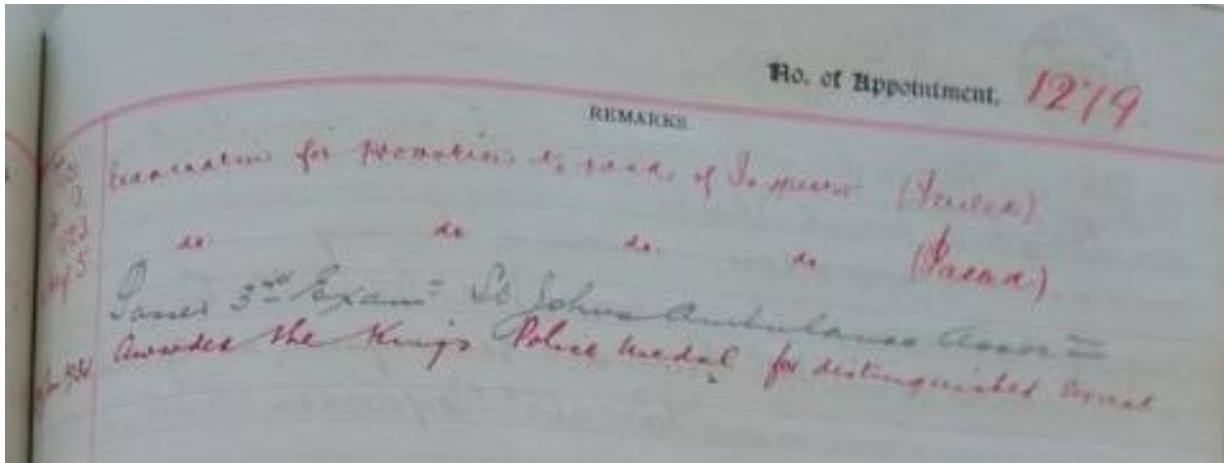 No. of Appointment. 1279
REMARKS
Examination for Promotion to rank of Inspector (Failed)
do do do. do (Passed)
Passed 3rd Exam= St Johns Ambulance Assn=
Awarded the King's Police Medal for distinguished service